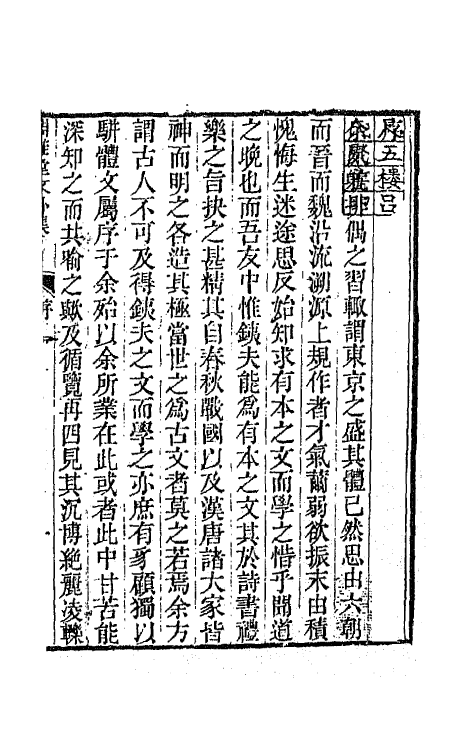 序五樓呂
余夙駢耦之習輒謂東京之盛其體已然思由六朝
而晉而魏沿流溯源上規作者才氣薾弱欲振末由積
愧悔生迷途思反始知求有本之文而學之惜乎聞道
之晚也而吾友中惟銕夫能爲有本之文其於詩書禮
樂之旨抉之甚精其自春秋戰國以及漢唐諸大家皆
神而明之各造其極當世之爲古文者莫之若焉余方
謂古人不可及得銕夫之文而學之亦庶有豸顧獨以
駢體文屬序于余殆以余所業在此或者此中甘苦能
深知之而共喻之歟及循覽再四見其沉博絶麗凌轢
雅堂文外集 序 一